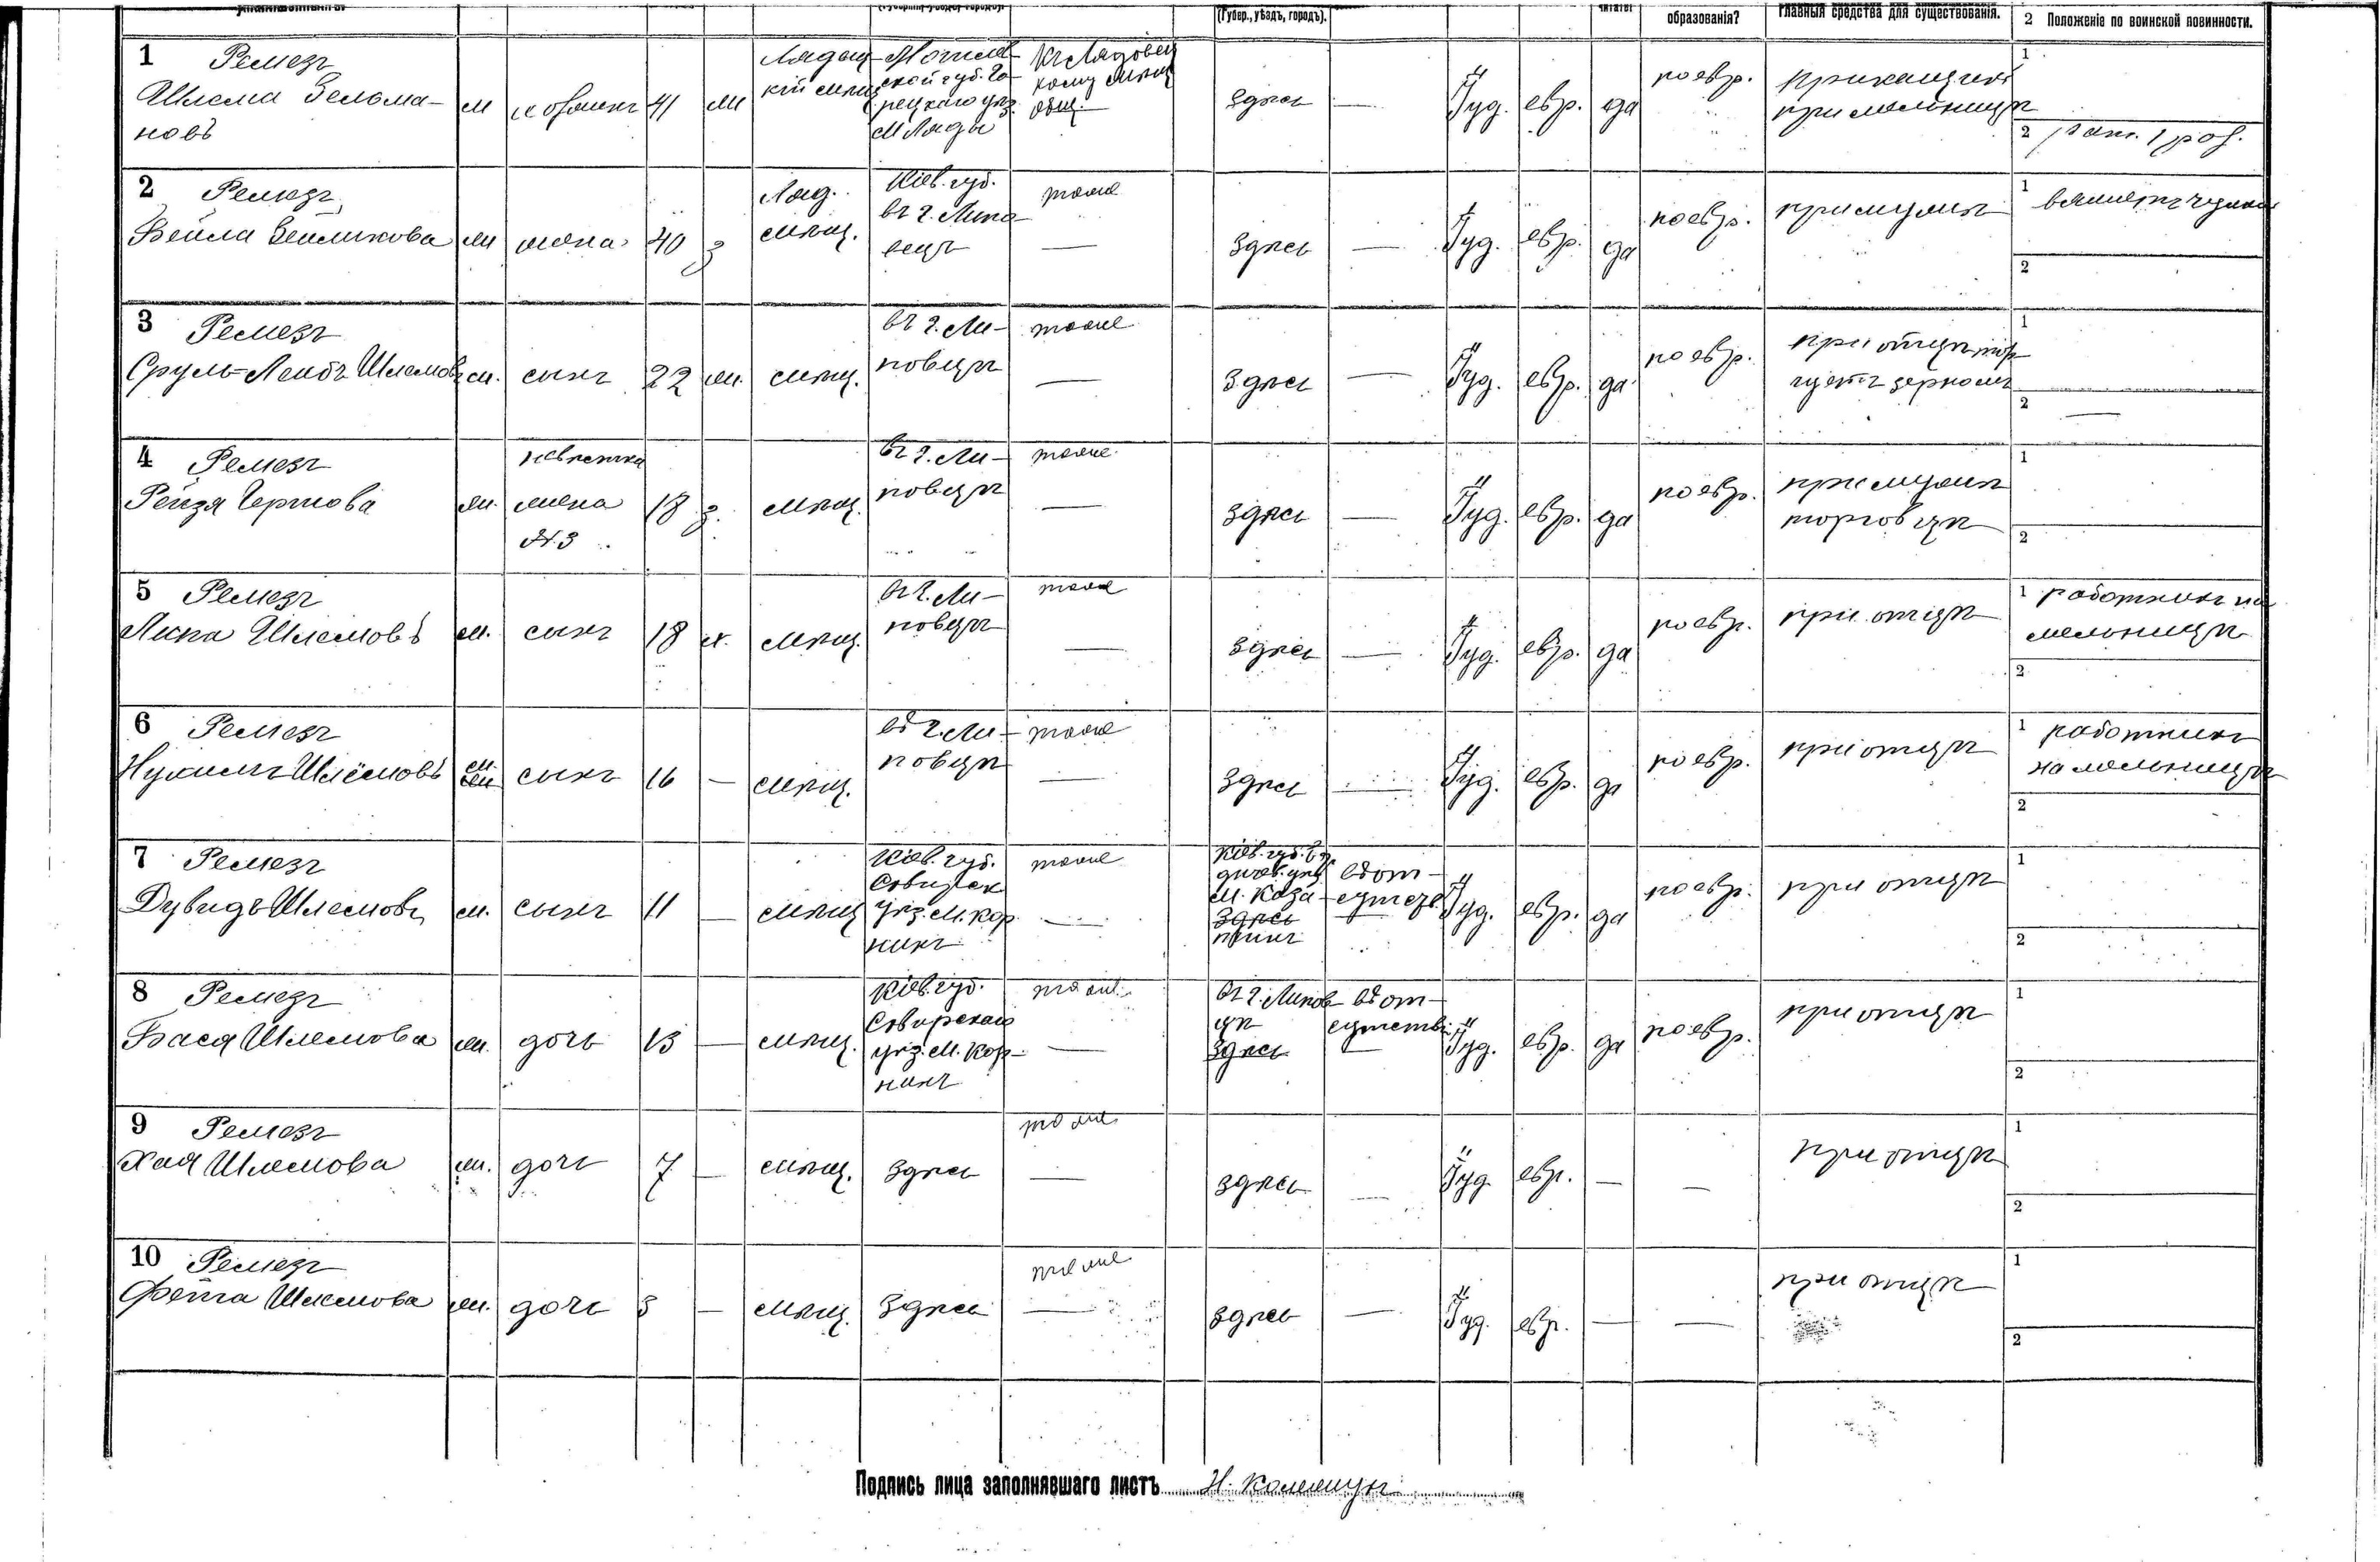 (Губер., уѣздъ, городъ).
образованія?
главныя средства для существованія.
2 Положеніе по воинской повинности.
1 Ремезъ
Шлема Зельма-
новъ
м
хозяинъ
41
Лядец-
кій мѣщ
Могилев-
ской губ. Го-
рецкаго уѣз.
м Ляды
Къ Лядовец
кому мѣщ
общ.
здѣсь
—
Іуд.
евр.
да
по евр.
прикащикъ
при мельницѣ
1
2
2 Ремезъ
Бейла
ж
жена
40
з
Ляд.
мѣщ.
Кіев. губ.
въ г. Липо
вцѣ
тоже
—
здѣсь
—
Іуд.
евр.
да
по евр.
при мужѣ
1 вяжетъ чулки
2
3 Ремезъ
Сруль-Лейбъ Шлемовъ
м.
сынъ
22
ж.
мѣщ.
въ г. Ли-
повцѣ
тоже
—
здѣсь
—
Іуд.
евр.
да
по евр.
при отцѣ тор
гуетъ зерномъ
1
2
—
4 Ремезъ
Рейзя Гершкова
ж.
невѣстка
жена
№ 3
18
з.
мѣщ.
въ г. Ли-
повцѣ
тоже
—
здѣсь
—
Іуд.
евр.
да
по евр.
при мужѣ
торговцѣ
1
2
5 Ремезъ
Шлемовъ
м.
сынъ
18
х.
мѣщ.
въ г. Ли-
повцѣ
тоже
—
здѣсь
—
Іуд.
евр.
да
по евр.
при отцѣ
1 работникъ на
мельницѣ
2
6 Ремезъ
Нухимъ Шлёмовъ
м.
сынъ
16
—
мѣщ.
въ г. Ли-
повцѣ
тоже
—
здѣсь
—
Іуд.
евр.
да
по евр.
при отцѣ
1 работникъ
на мельницѣ
2
7 Ремезъ
Дувидъ Шлемовъ
м.
сынъ
11
—
мѣщ
Кіев. губ.
Сквирск
уѣз. м. Кор
нинъ
тоже
—
Кіев. губ.
м. Каза-
здѣсь
тинъ
въ от-
сутств.
Іуд.
евр.
да
по евр.
при отцѣ
1
2
8 Ремезъ
Бася Шлемова
ж.
дочь
13
—
мѣщ.
Кіев. губ.
Сквирскаго
уѣз. м. Кор-
нинъ
тоже
—
въ г. Липов-
цѣ
здѣсь
въ от-
сутств.
—
Іуд.
евр.
да
по евр.
при отцѣ
1
2
9 Ремезъ
Хая Шлемова
ж.
дочь
7
—
мѣщ.
здѣсь
тоже
—
здѣсь
—
Іуд
евр.
—
—
при отцѣ
1
2
10 Ремезъ
Шлемова
ж.
дочь
3
—
мѣщ.
здѣсь
тоже
—
здѣсь
—
Іуд.
евр.
—
—
при отцѣ
1
2
Подпись лица заполнявшаго листъ